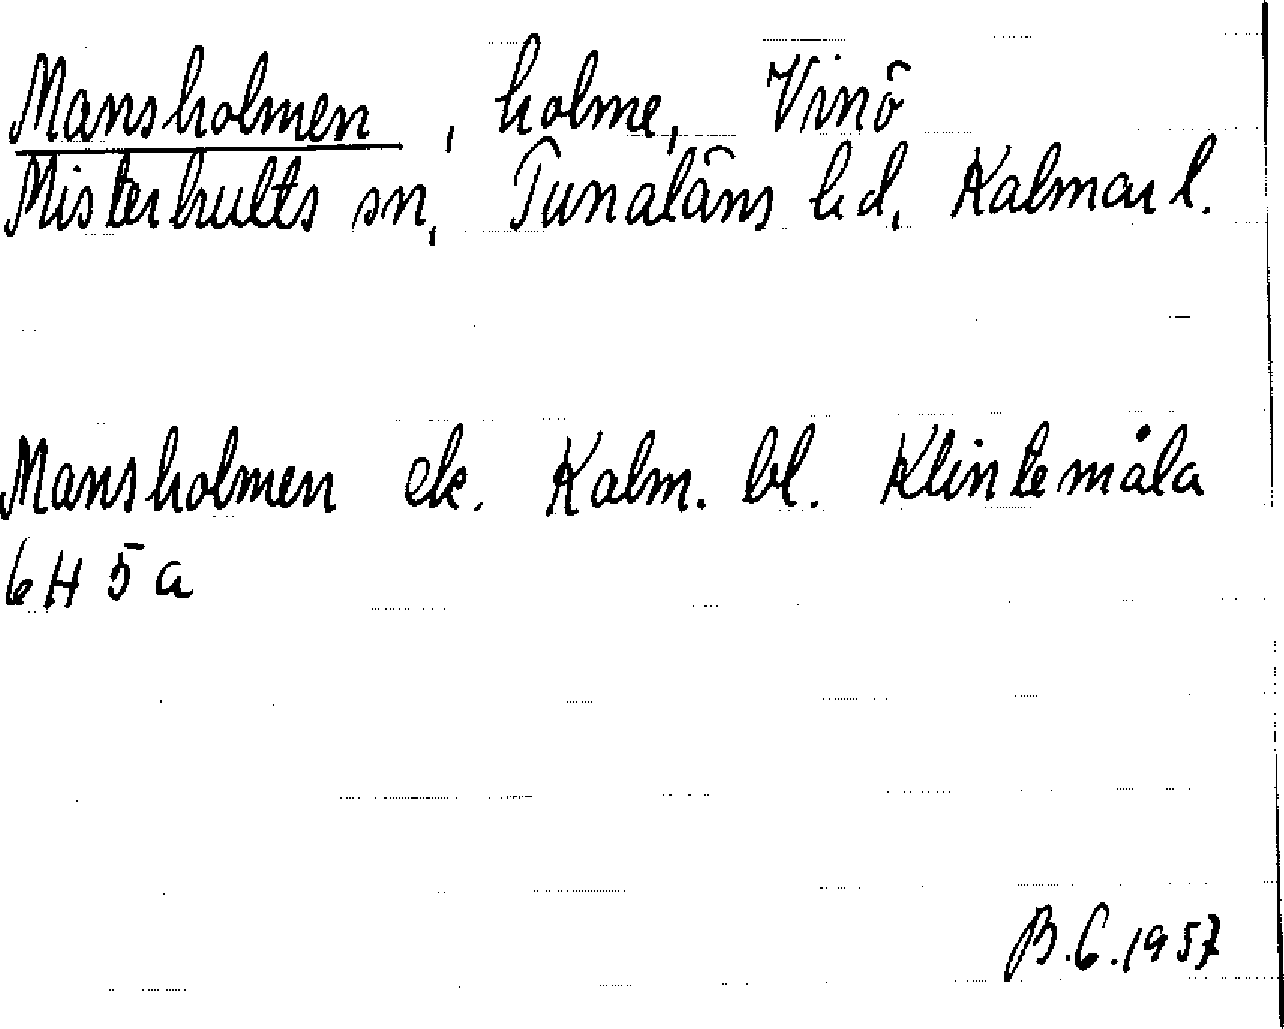 Mansholmen, holme, Vinö
Misterhults sn, Tunaläns hd, Kalmar l.
Mansholmen ek. Kalm. bl. Klintemåla
6H 5a
B.C.1957